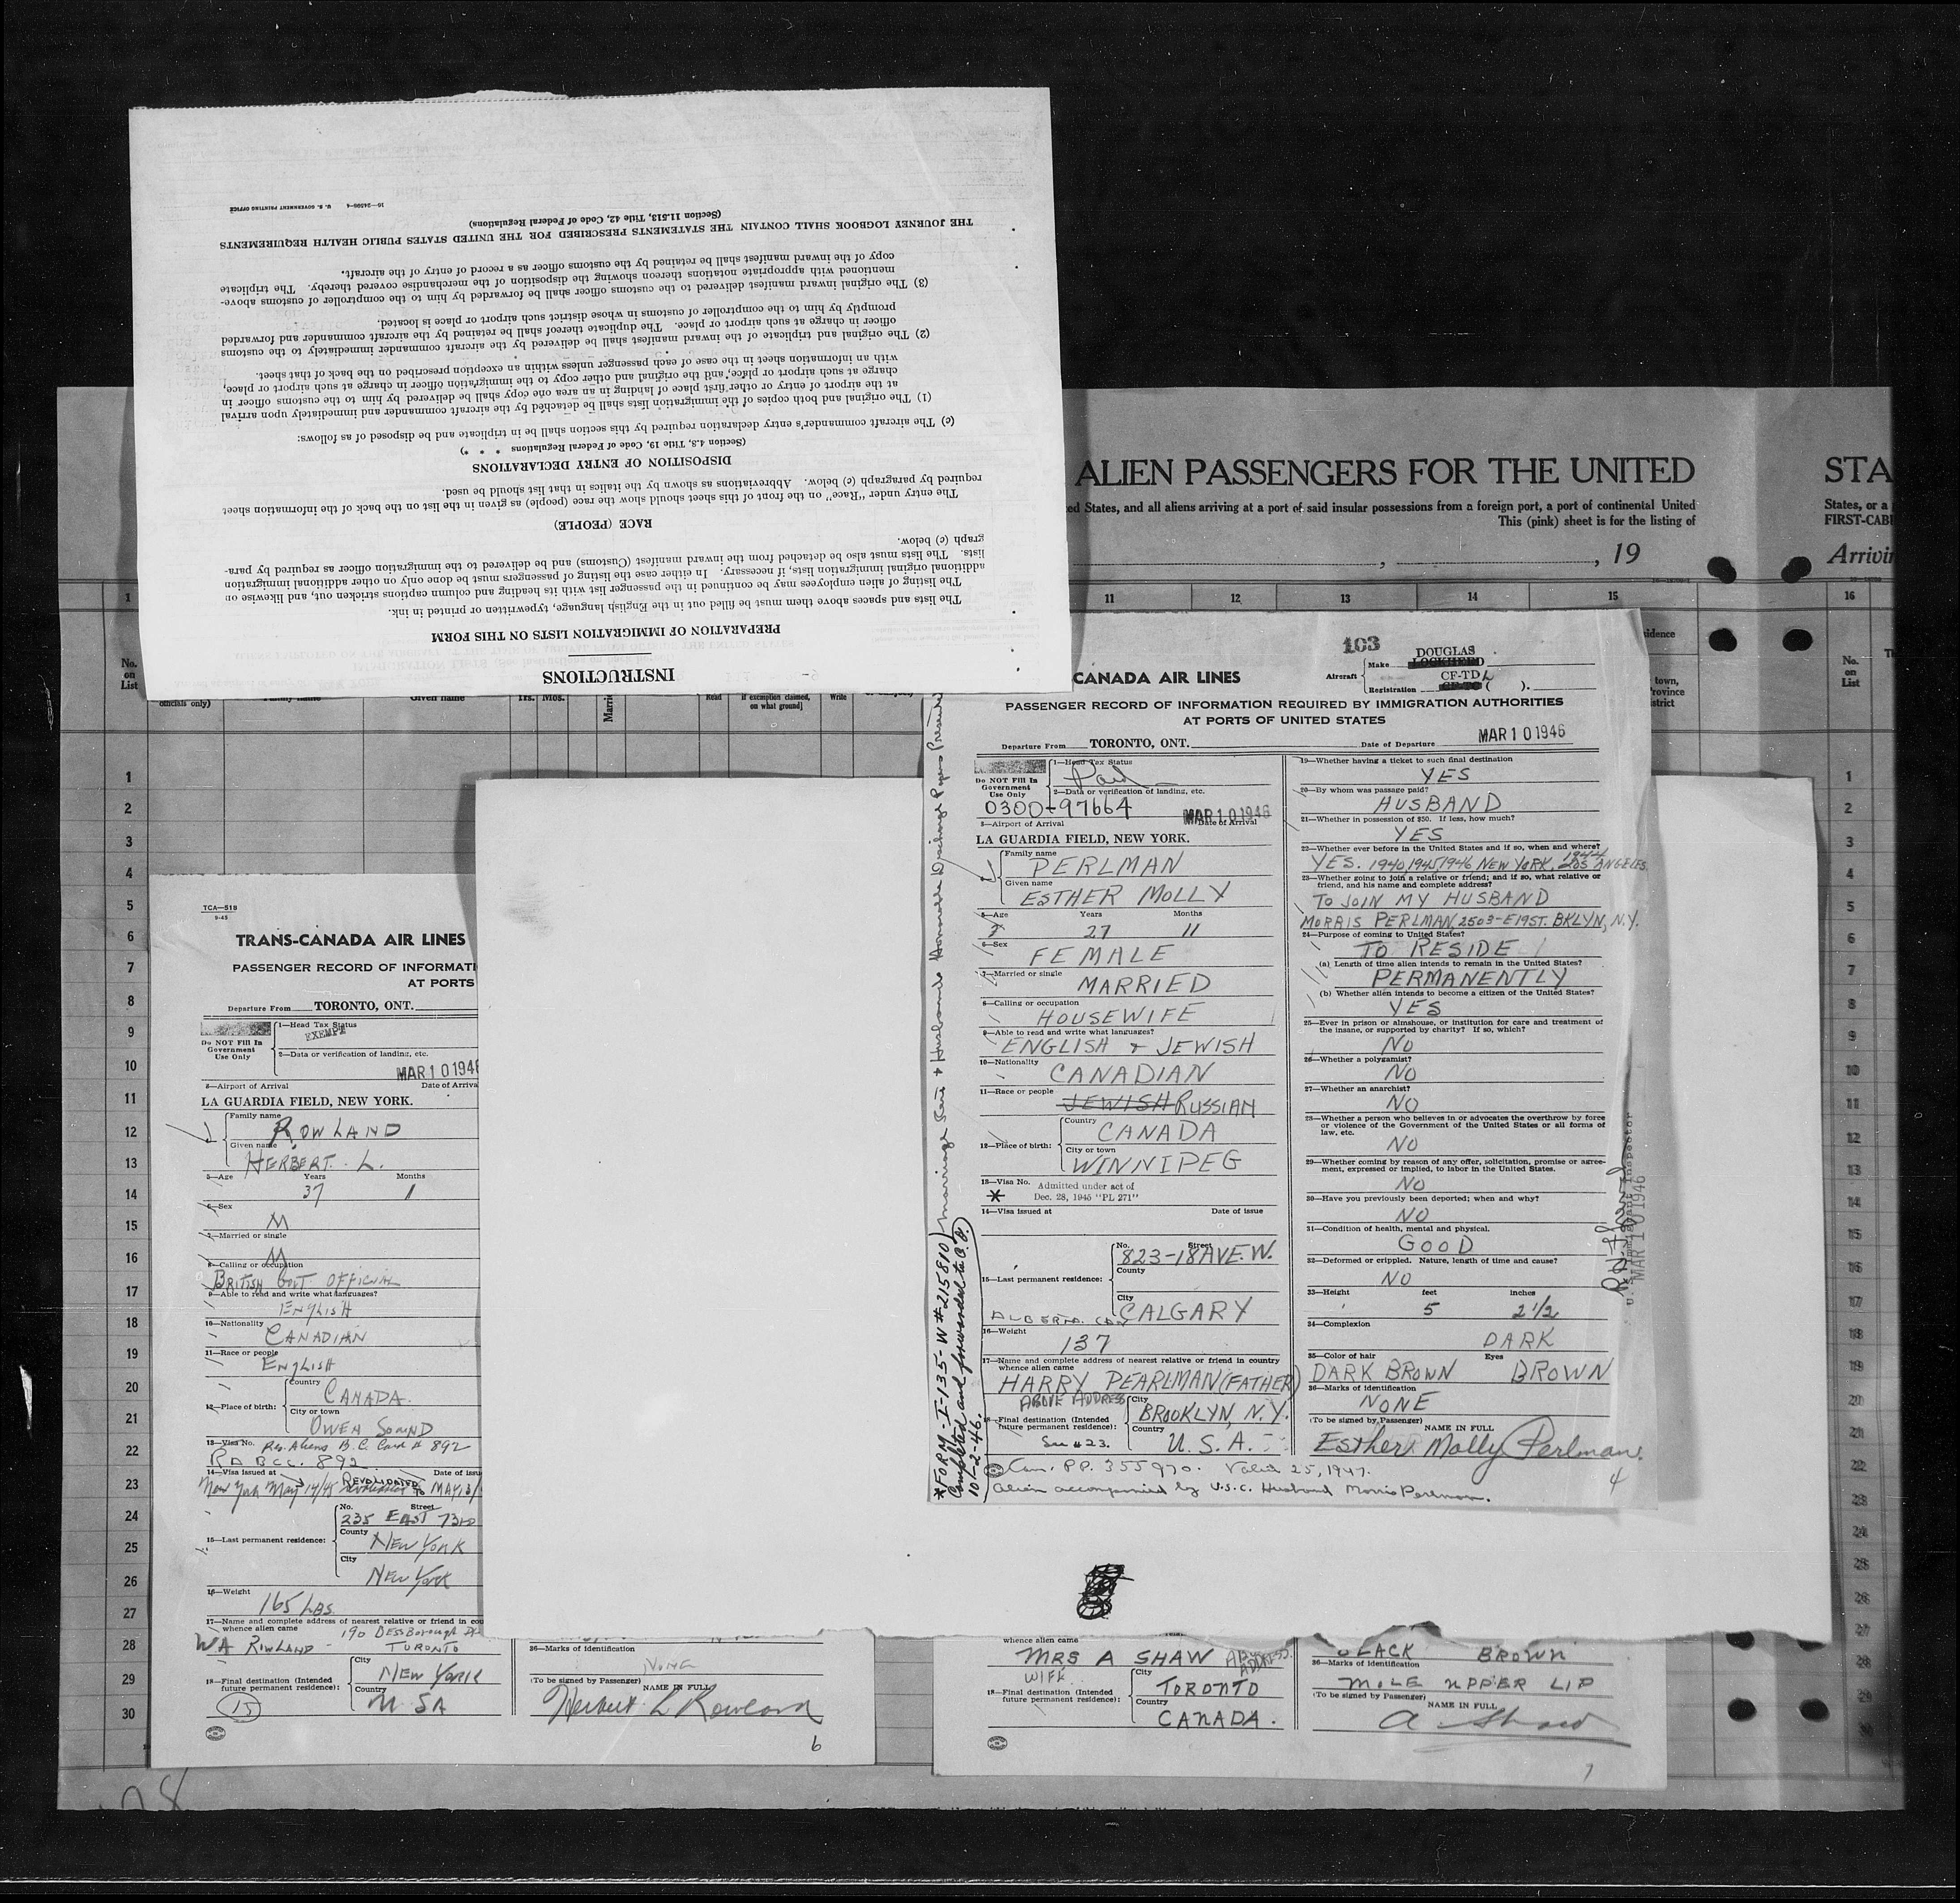 INSTRUCTIONS
PREPARATION OF IMMIGRATION LISTS ON THIS FORM
The lists and spaces above them must be filled out in the English language, typewritten or printed in ink.
The listing of alien employees may be continued in the passenger list with its heading and column captions stricken out, and likewise on
additional original immigration lists, if necessary. In either case the listing of passengers must be done only on other additional immigration
lists. The lists must also be detached from the inward manifest (Customs) and be delivered to the immigration officer as required by para-
graph (c) below.
RACE (PEOPLE)
The entry under "Race" on the front of this sheet should show the race (people) as given in the list on the back of the information sheet
required by paragraph (c) below. Abbreviations as shown by the italics in that list should be used.
DISPOSITION OF ENTRY DECLARATIONS
(Section 4.8, Title 19, Code of Federal Regulations * * *)
(c) The aircraft commander's entry declaration required by this section shall be in triplicate and be disposed of as follows:
(1) The original and both copies of the immigration lists shall be detached by the aircraft commander and immediately upon arrival
at the airport of entry or other first place of landing in an area one copy shall be delivered by him to the customs officer in
charge at such airport or place, and the original and other copy to the immigration officer in charge at such airport or place,
with an information sheet in the case of each passenger unless within an exception prescribed on the back of that sheet.
(2) The original and triplicate of the inward manifest shall be delivered by the aircraft commander immediately to the customs
officer in charge at such airport or place. The duplicate thereof shall be retained by the aircraft commander and forwarded
promptly by him to the comptroller of customs in whose district such airport or place is located.
(3) The original inward manifest delivered to the customs officer shall be forwarded by him to the comptroller of customs above-
mentioned with appropriate notations thereon showing the disposition of the merchandise covered thereby. The triplicate
copy of the inward manifest shall be retained by the customs officer as a record of entry of the aircraft.
THE JOURNEY LOGBOOK SHALL CONTAIN THE STATEMENTS PRESCRIBED FOR THE UNITED STATES PUBLIC HEALTH REQUIREMENTS
(Section 11.513, Title 42, Code of Federal Regulations)
16—24598-4 U. S. GOVERNMENT PRINTING OFFICE
ALIEN PASSENGERS FOR THE UNITED STA
ed States, and all aliens arriving at a port of said insular possessions from a foreign port, a port of continental United States, or a
This (pink) sheet is for the listing of FIRST-CABI
, 19 Arrivin
1 11 12 13 14 15 16
No.
on
List
officials only) Family name Given name Yrs. Mos. Read if exemption claimed, Write
on what ground]
town,
No.
on
List
1
2
3
4
5
6
7
8
9
10
11
12
13
14
15
16
17
18
19
20
21
22
23
24
25
26
27
28
29
30
TCA—518
9-45
TRANS-CANADA AIR LINES
PASSENGER RECORD OF INFORMATI
AT PORTS
Departure From TORONTO, ONT.
Do NOT Fill In
Government
Use Only
1—Head Tax Status
EXEMPT
2—Data or verification of landing, etc.
MAR 10 1946
3—Airport of Arrival Date of Arriva
LA GUARDIA FIELD, NEW YORK.
Family name
ROWLAND
Given name
HERBERT. L.
5—Age Years Months
37 1
6—Sex
M
7—Married or single
M
8—Calling or occupation
BRITISH GOVT OFFICIAL
9—Able to read and write what languages?
ENGLISH
10—Nationality
CANADIAN
11—Race or people
ENGLISH
12—Place of birth:
Country
CANADA.
City or town
OWEN SOUND
13—Visa No. Res. Aliens B.C. Card # 892
RABCC. 892
14—Visa issued at Date of issu
New York May 14/45 REVALIDATED TO MAY 13/
15—Last permanent residence:
No. Street
235 EAST 73RD
County
NEW YORK
City
NEW YORK
16—Weight
165 LBS
17—Name and complete address of nearest relative or friend in cou
whence alien came 190 DESSBOROUGH
WA ROWLAND - TORONTO
18—Final destination (Intended
future permanent residence):
City
NEW YORK
Country
U SA
15
36—Marks of identification
NONE
(To be signed by Passenger)
NAME IN FULL
Herbert L Rowland
6
103
CANADA AIR LINES
Aircraft Make DOUGLAS LOCKHEED
Registration CF-TD L CF-TC ( ).
PASSENGER RECORD OF INFORMATION REQUIRED BY IMMIGRATION AUTHORITIES
AT PORTS OF UNITED STATES
Departure From TORONTO, ONT. Date of Departure MAR 10 1946
Do NOT Fill In
Government
Use Only
1—Head Tax Status
Paid
2—Data or verification of landing, etc.
0300-97664 MAR 10 1946
3—Airport of Arrival Date of Arrival
LA GUARDIA FIELD, NEW YORK.
Family name
PERLMAN
Given name
ESTHER MOLLY
5—Age Years Months
27 11
6—Sex
FEMALE
7—Married or single
MARRIED
8—Calling or occupation
HOUSEWIFE
9—Able to read and write what languages?
ENGLISH & JEWISH
10—Nationality
CANADIAN
11—Race or people
JEWISH RUSSIAN
12—Place of birth:
Country
CANADA
City or town
WINNIPEG
13—Visa No. Admitted under act of
* Dec. 28, 1945 "PL 271"
14—Visa issued at Date of issue
15—Last permanent residence:
No. Street
823-18 AVE. W.
County
City
ALBERTA. CAN CALGARY
16—Weight
137
17—Name and complete address of nearest relative or friend in country
whence alien came
HARRY PEARLMAN (FATHER)
ABOVE ADDRESS
18—Final destination (Intended
future permanent residence):
See #23.
City
BROOKLYN, N.Y.
Country
U.S.A.
Can. PP. 355970. Valid 25, 1947.
Alien accompanied by U.S.C. Husband Morris Perlman.
19—Whether having a ticket to such final destination
YES
20—By whom was passage paid?
HUSBAND
21—Whether in possession of $50. If less, how much?
YES
22—Whether ever before in the United States and if so, when and where?
YES. 1940, 1945, 1946 NEW YORK, 1944 LOS ANGELES.
23—Whether going to join a relative or friend; and if so, what relative or
friend, and his name and complete address?
TO JOIN MY HUSBAND
MORRIS PERLMAN, 2503-E19ST. BKLYN, N.Y.
24—Purpose of coming to United States?
TO RESIDE
(a) Length of time alien intends to remain in the United States?
PERMANENTLY
(b) Whether alien intends to become a citizen of the United States?
YES
25—Ever in prison or almshouse, or institution for care and treatment of
the insane, or supported by charity? If so, which?
NO
26—Whether a polygamist?
NO
27—Whether an anarchist?
NO
28—Whether a person who believes in or advocates the overthrow by force
or violence of the Government of the United States or all forms of
law, etc.
NO
29—Whether coming by reason of any offer, solicitation, promise or agree-
ment, expressed or implied, to labor in the United States.
NO
30—Have you previously been deported; when and why?
NO
31—Condition of health, mental and physical.
GOOD
32—Deformed or crippled. Nature, length of time and cause?
NO
33—Height feet inches
5 2 1/2
34—Complexion
DARK
35—Color of hair Eyes
DARK BROWN BROWN
36—Marks of identification
NONE
(To be signed by Passenger)
NAME IN FULL
Esther Molly Perlman.
4
*FORM-I-135-W#215810
Completed and forwarded to C.O.
10-2-46.
Marriage & Husbands Honorable Discharge Papers
MAR 10 1946
whence alien came
MRS A SHAW ABOVE ADDRESS.
WIFE.
18—Final destination (Intended
future permanent residence):
City
TORONTO
Country
CANADA.
BLACK BROWN
36—Marks of identification
MOLE UPPER LIP
(To be signed by Passenger)
NAME IN FULL
A Shaw
7